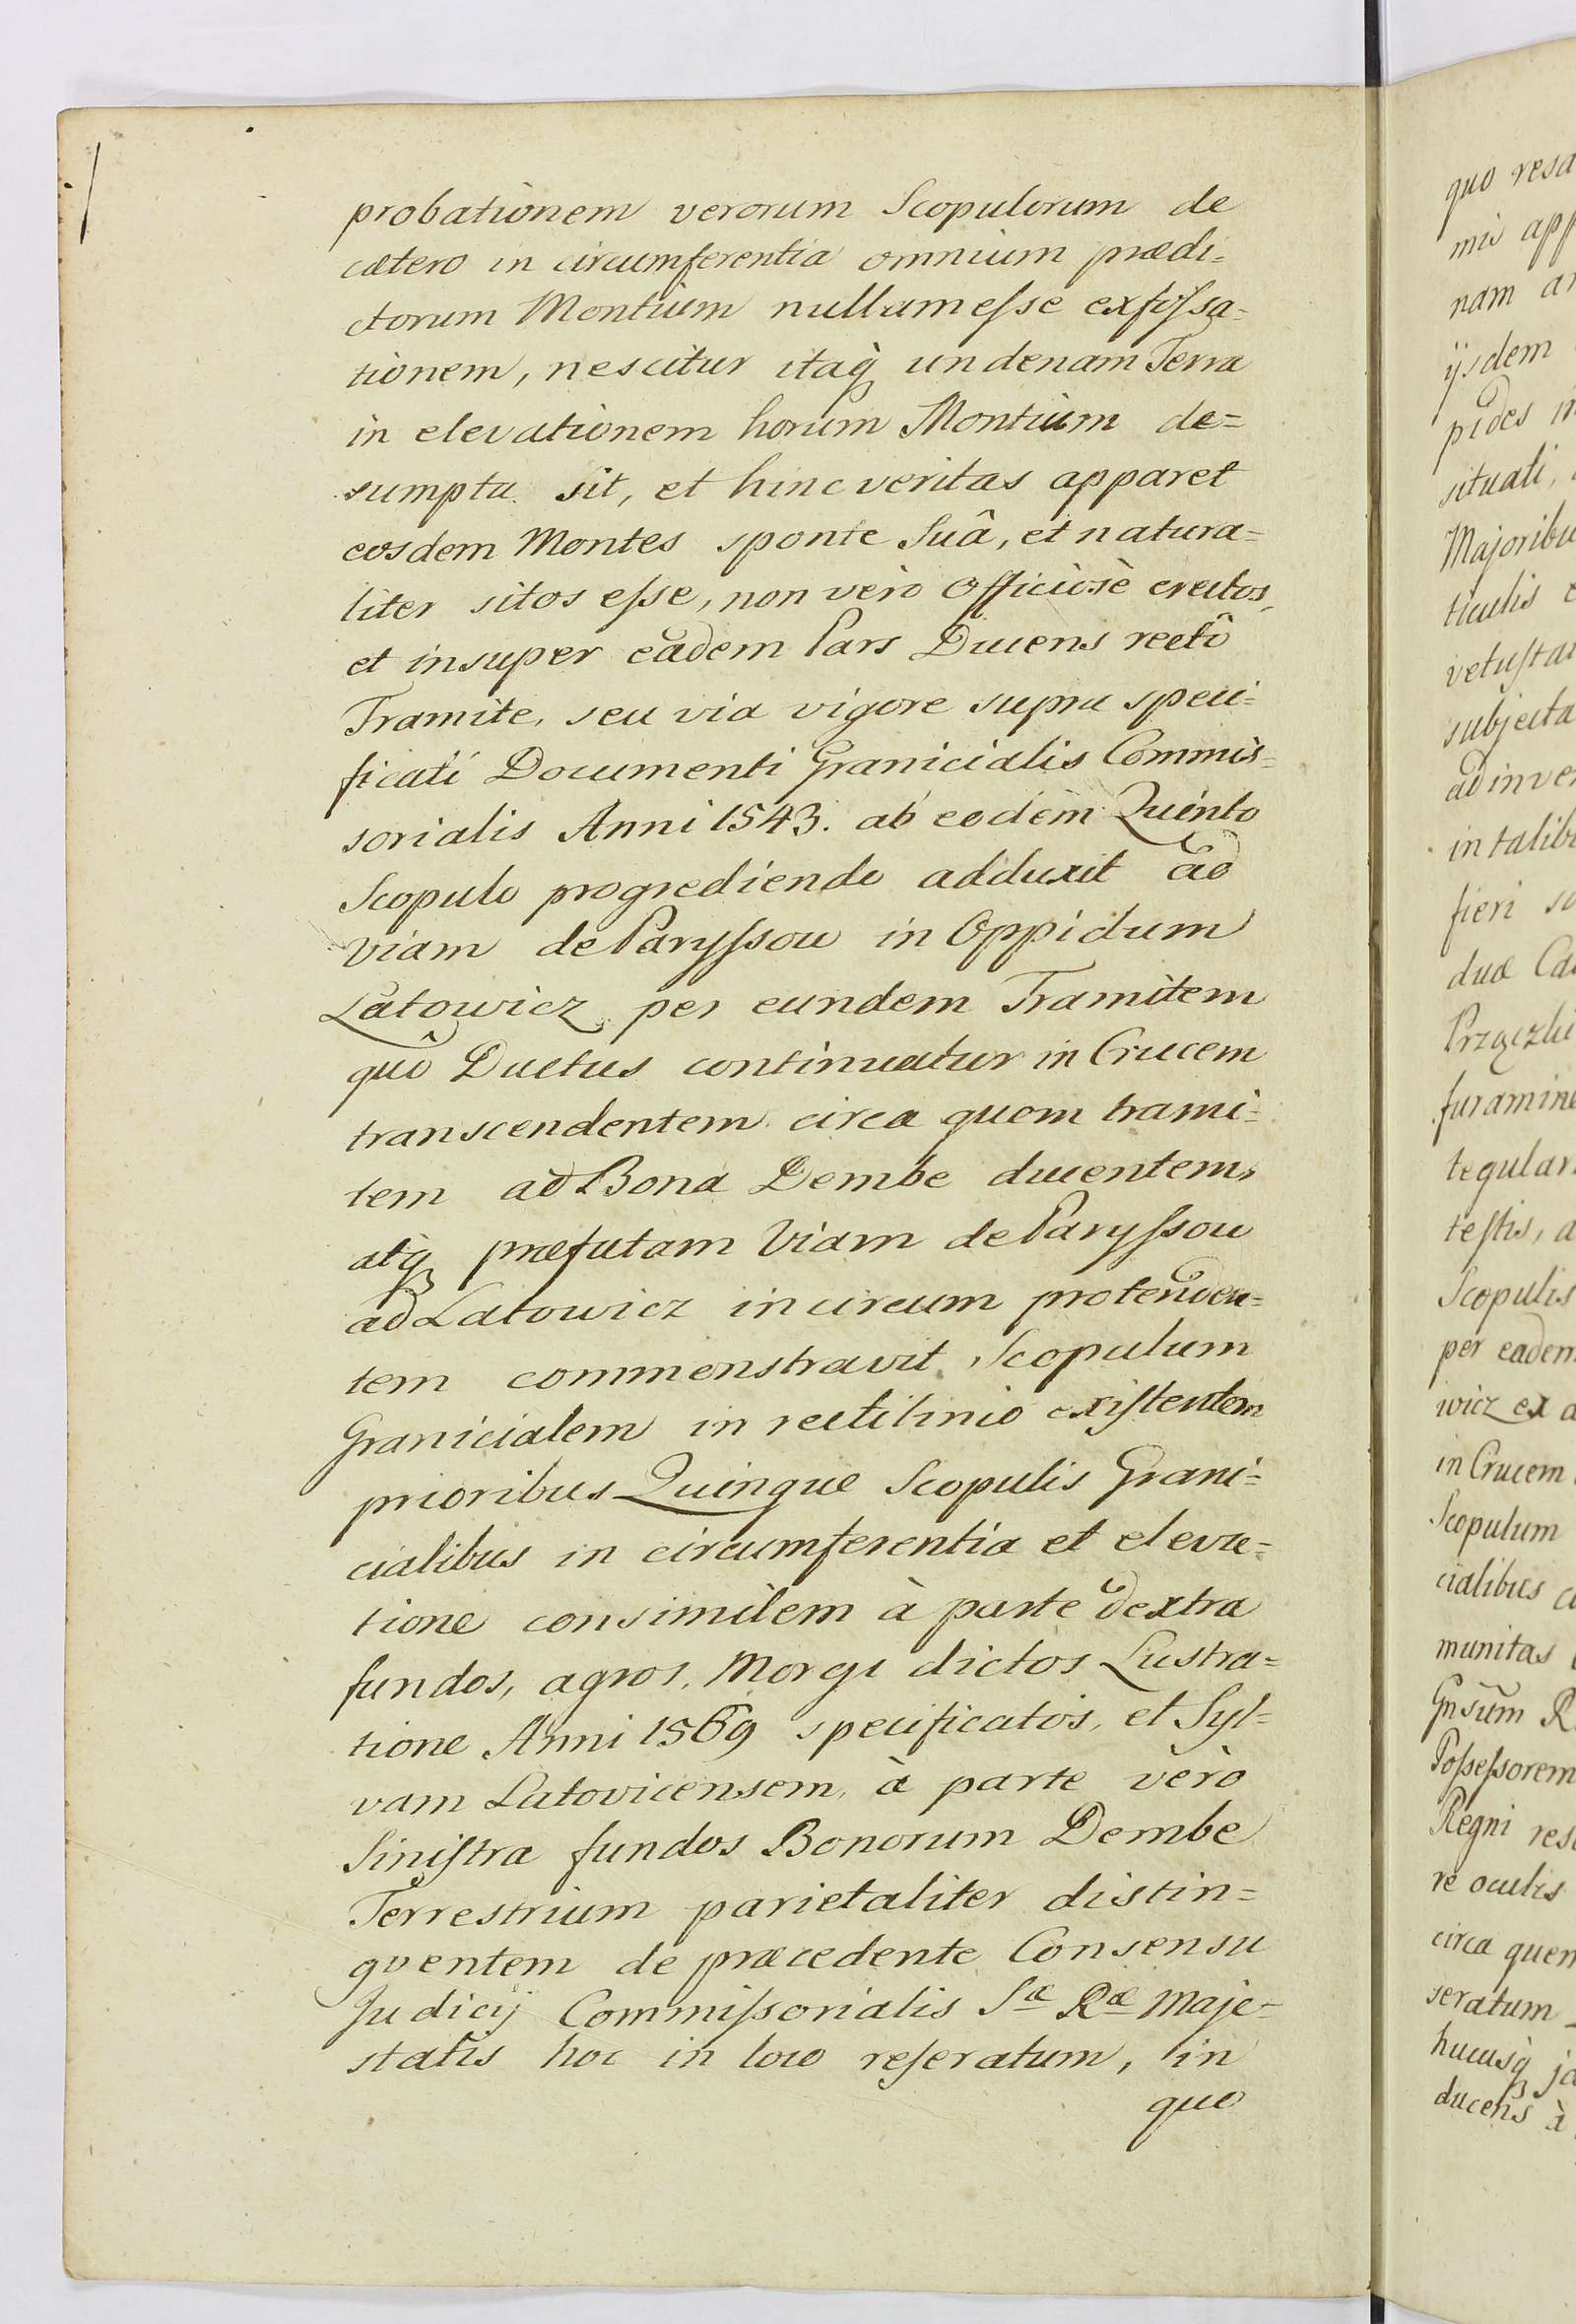 probationem verorum Scopulorum de
cætero in circumferentia omnium prædi=
ctorum Montium nullam eſse exfoſsa=
tionem, nescitur itaq̀ undenam Terra
in elevationem horum Montium de=
sumpta sit, et hinc veritas apparet
eosdem Montes sponte Suâ, et natura=
liter sitos eſse, non vèrò Officiosè erectos,
et insuper eadem Pars Ducens rectô
Tramite, seu via vigore supra speci=
ficati Documenti Granicialis Commis=
sorialis Anni 1543. ab eodem Quinto
Scopulo progrediendo adduxit ad
Viam de Paryſsow in Oppidum
Latowicz per eundem Tramitem
quô Ductus continuatur in Crucem
transcendentem circa quem trami=
tem ad Bona Dembe ducentem,
atq præfatam Viam de Paryſsow
ad Latowicz in circum protenden=
tem commonstravit Scopulum
Granicialem in rectilinio exiſtentem
prioribus Quinque Scopulis Grani=
cialibus in circumferentia et eleva=
tione consimilem à parte dextra
fundos, agros, Morgi dictos Lustra=
tione Anni 1569 specificatos, et Syl=
vam Latovicensem, à parte vèrò
Siniſtra fundos Bonorum Dembe
Terrestrium parietaliter distin=
guentem de præcedente Consensu
Judicij Commiſsorialis Sæ Ræ Maje=
statis hoc in loco reſeratum, in
quo
quo resa
mis app
nam ar
ijsdem
pides in
situati,
Majoribu
ticulis
vetuſta
subjecta
adinve
in talib
fieri so
duæ Ca
furamine
tegular
teſtis, a
Scopulis
per eadem
wicz ex a
in Crucem
Scopulum
cialibus c
munitas
Gnsum R
Poſseſsorem
Regni res
re oculis
circa quem
seratum
hucusq ja
ducens à